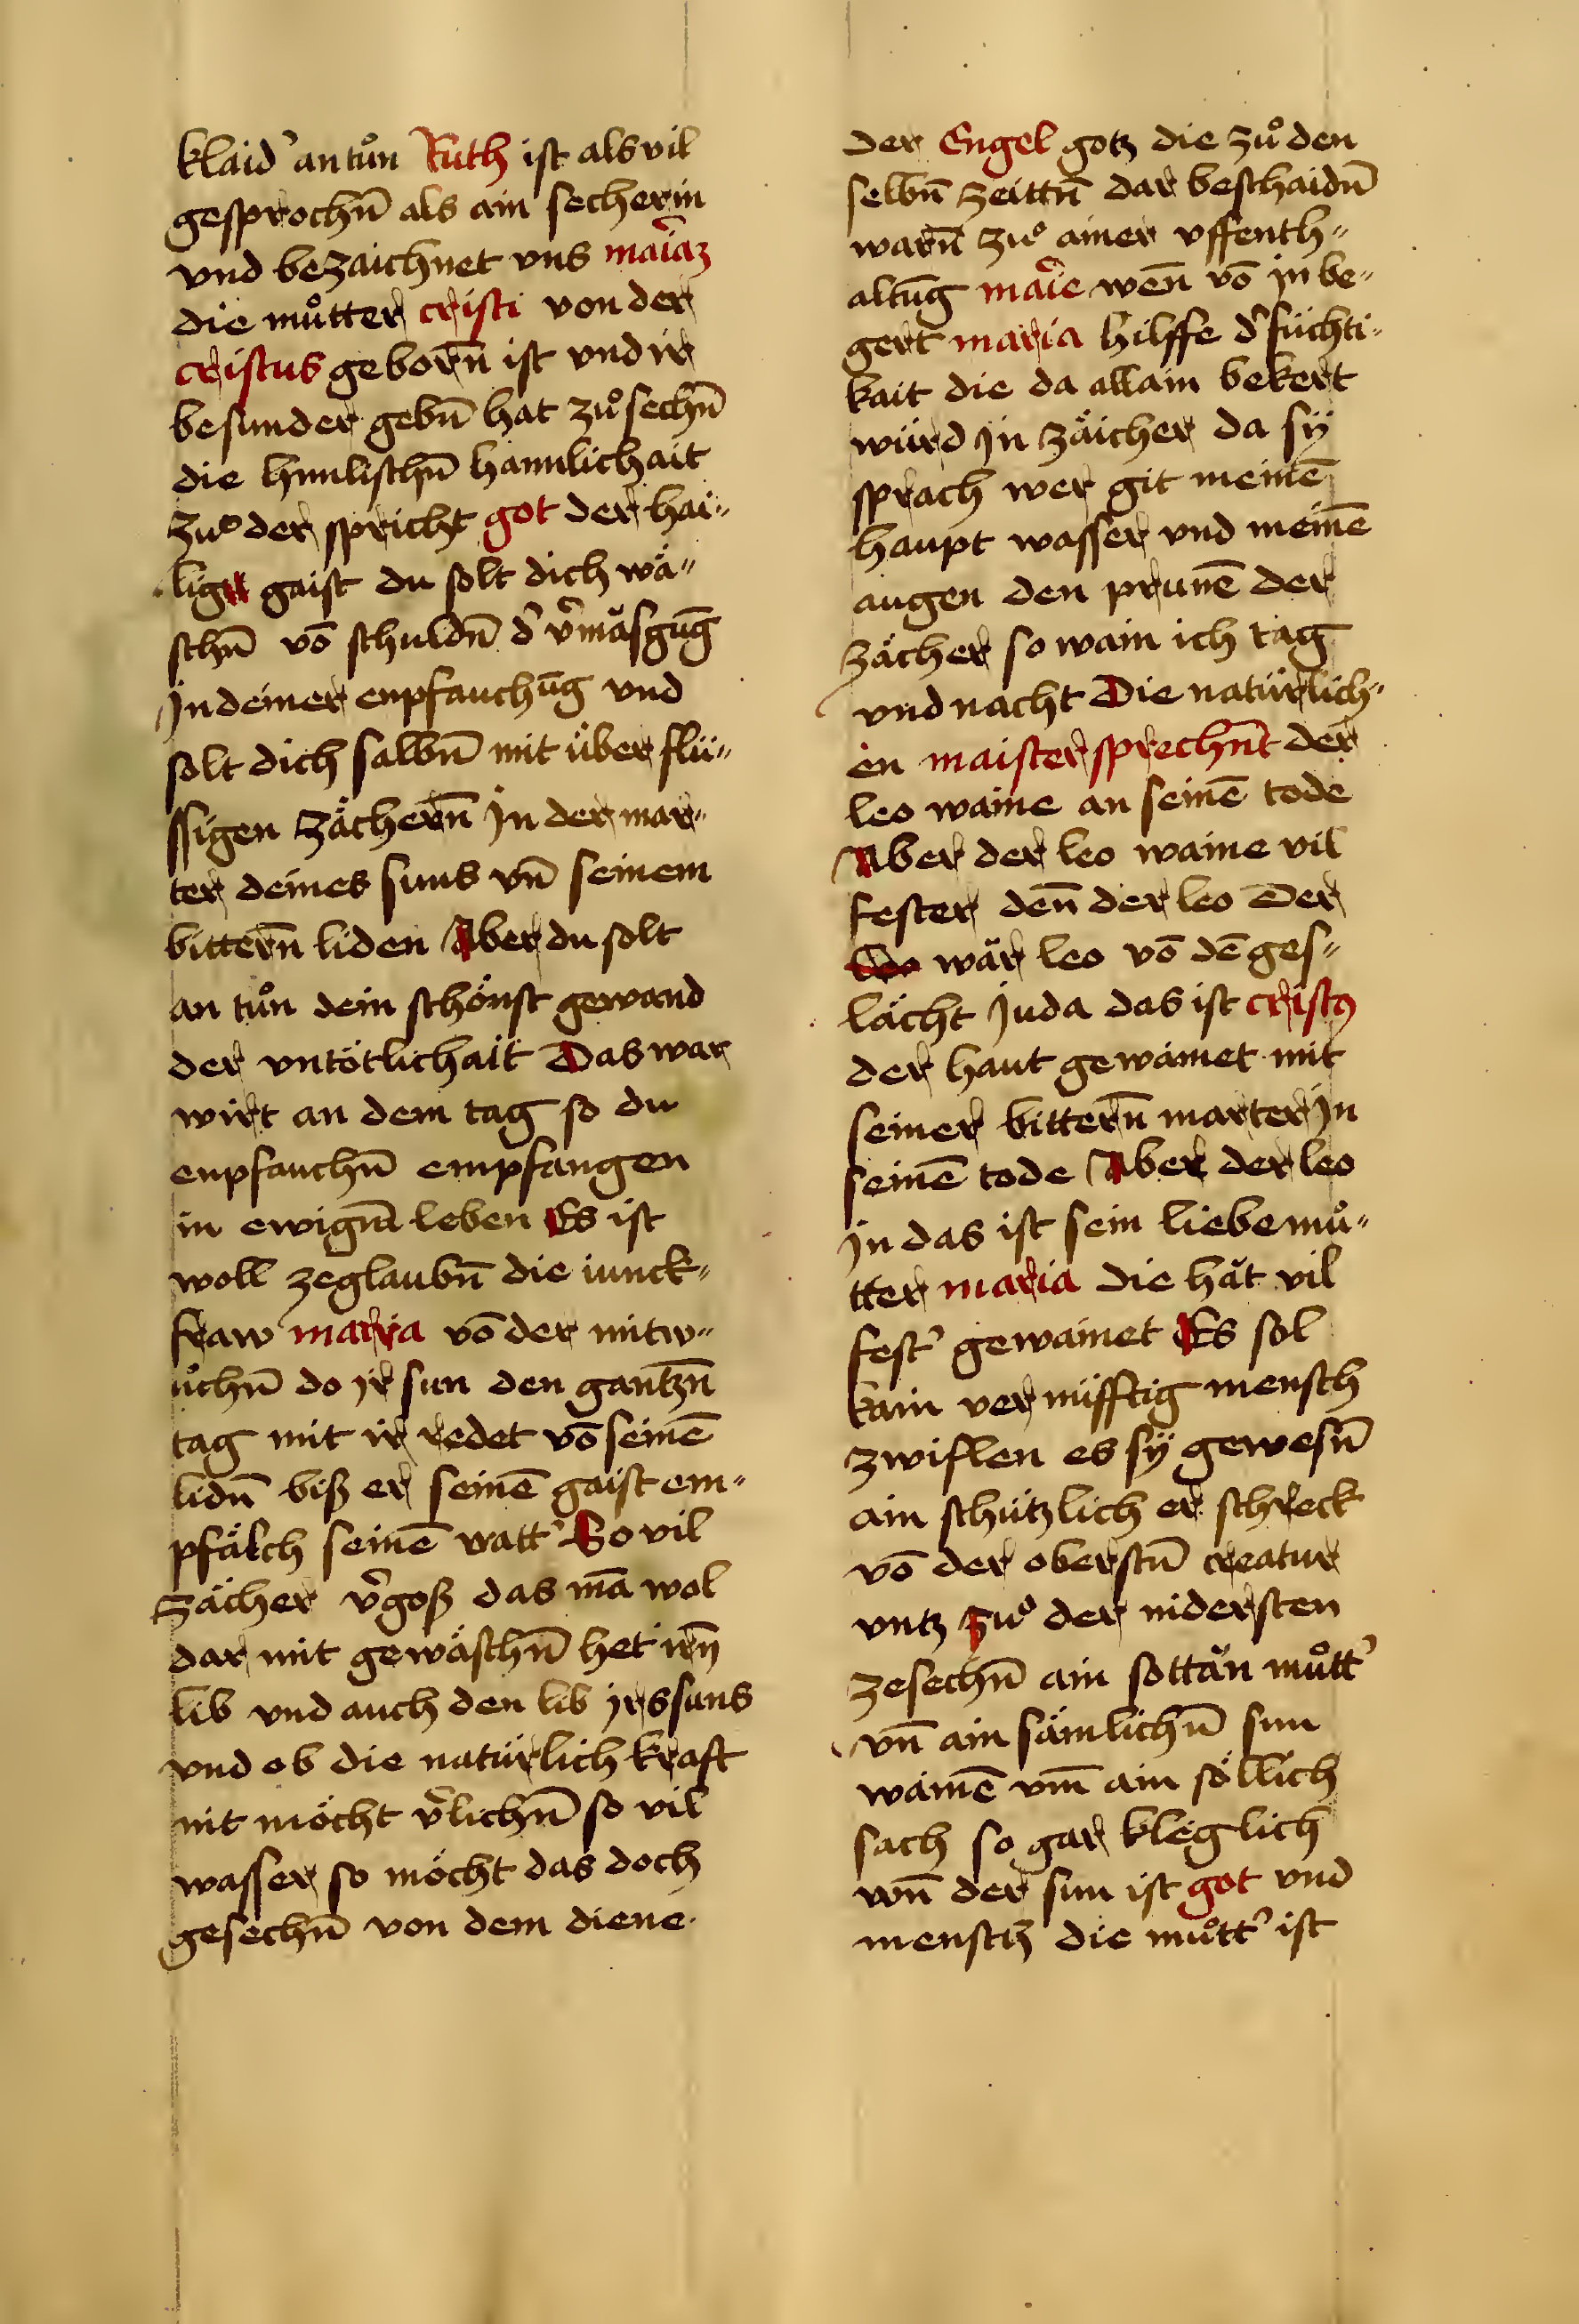 klaid' an tuͦn Ruth ist als vil
gesprochn̄ als ain secherin
vnd bezaichnet vns mar̄iaʒ
die muͦtter cristi von der
cristus geborn̄ ist vnd ir
besunder gebn̄ hat zuͦ sechn̄
die himlischn̄ hannlichait
zuͦ der spricht got der hai„
lig gaist du solt dich wä„
schn̄ vō schuldn̄ d' v̄mäsgūg
Jn deiner enpfauchūg vnd
solt dich salbn̄ mit über flü„
ssigen zächern̄ Jn der mar„
ter deines suns vn̄ seinem
bittern̄ liden Aber du solt
an tuͦn dein schönst gewand
der vntötlichait Das war
wirt an dem tag so du
enpfauchn̄ empfangen
in ewign̄ leben Es ist
woll zeglaubn̄ die iunck„
fraw maria vō der mitw„
uͦchn̄ do jr sun den gantzn̄
tag mit ir redet vō seinē
lidn̄ biß er seinē gaist em„
pfälch seinē vatt' So vil
zächer v'goß das mā wol
dar mit gewäschn̄ het irn̄
lib vnd auch den lib jrs suns
vnd ob die natürlich kraft
nit möcht v'lichn̄ so vil
wasser so möcht das doch
gesechn̄ von dem diene
der Engel gotz die zuͦ den
selbn̄ zeittn̄ dar beschaidn̄
warn̄ zuͦ ainer vffenth„
altūg mar̄ie wen̄ vō jn be„
gert maria hilffe d' füchti„
kait die da allain bekert
würd Jn zäicher da sÿ
sprach wer git meinē
haupt wasser vnd meinē
augen den prunē der
zächer so wain ich tag
vnd nacht Die natürlich„
en maister sprechn̄t der
leo waine an seinē tode
Aber der leo waine vil
fester den̄ der leo Der
leo wär leo vō dē ges„
lächt Juda das ist cristꝯ
der haut gewainet mit
seiner bittern̄ marter Jn
seinē tode Aber der leo
Jn das ist sein liebe muͦ„
tter maria die hät vil
fest' gewainet Es sol
kain vernüfftig mensch
zwiflen es sÿ gewesn̄
ain schützlich er schreck
vō der oberstn̄ creatur
vntz zuͦ der nidersten
zesechn̄ ain sottän muͦtt'
vn̄ ain sämlichn̄ sun
wainē vm̄ ain söllich
sach so gar kleglich
wn̄ der sun ist got vnd
mensch die muͦtt' ist